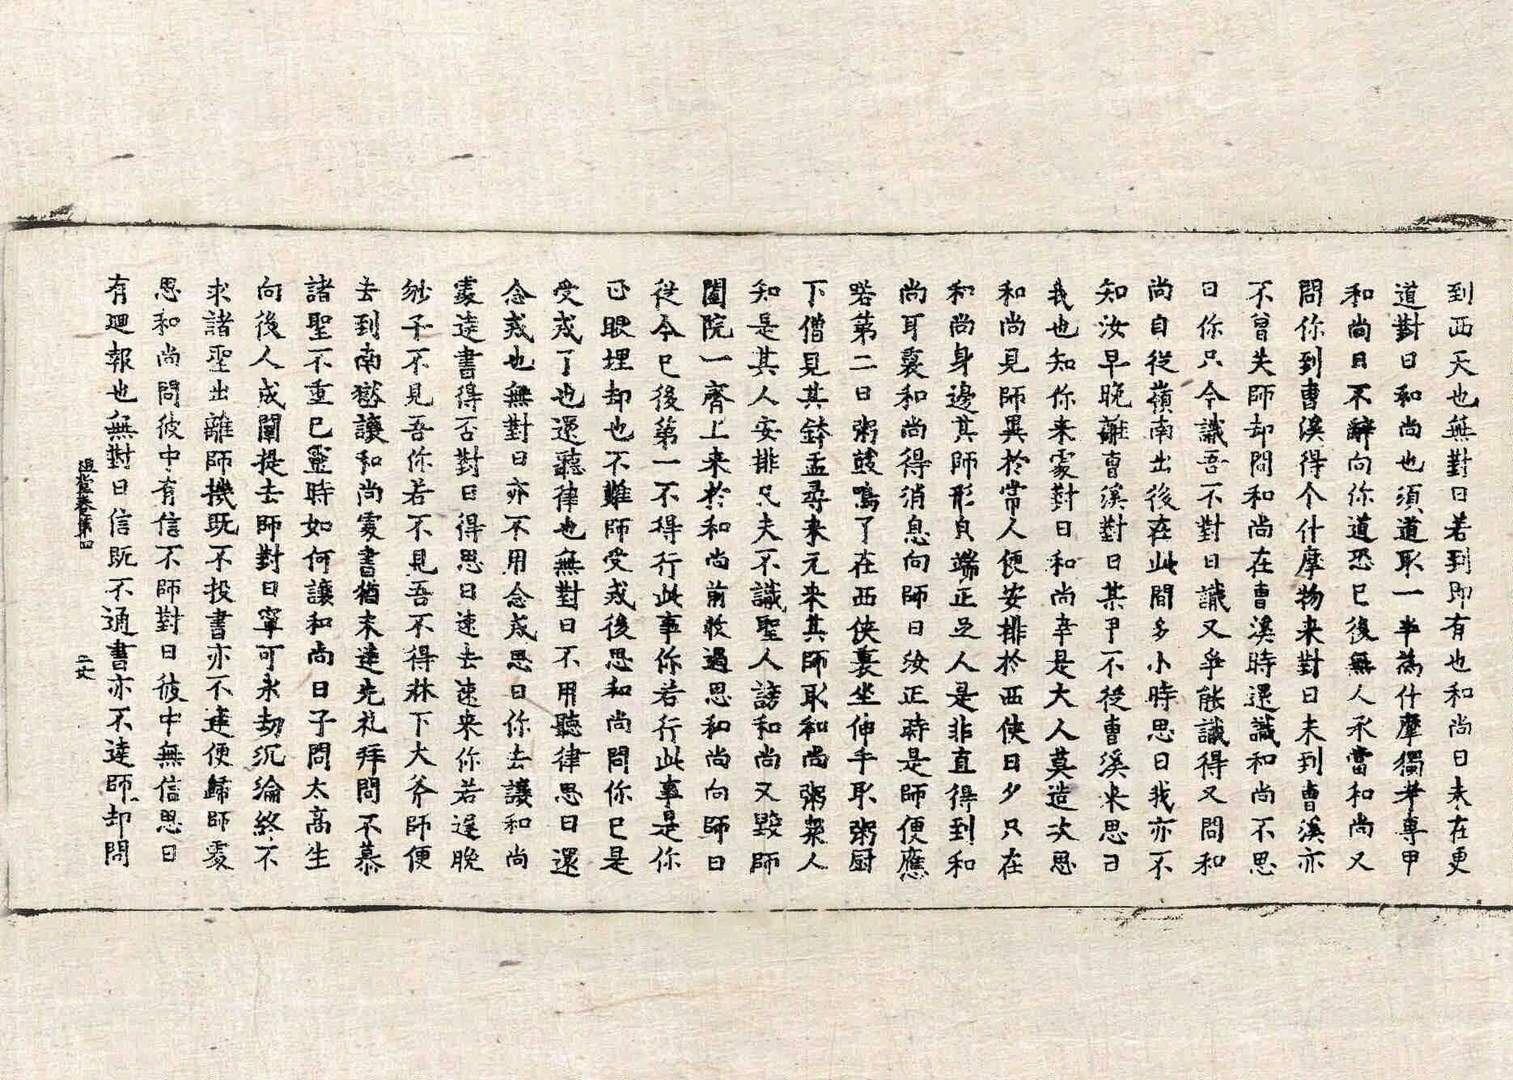 到西天也無對曰若到即有也和尚曰未在更
道對曰和尚也須道取一半為什摩獨考專甲
和尚曰不辭向你道恐已後無人承當和尚又
問你到曹溪得个什摩物来對曰未到曹溪亦
不曾失師却問和尚在曹溪時還識和尚不思
曰你只今識吾不對曰識又爭能識得又問和
尚自從嶺南出後在此間多小時思曰我亦不
知汝早晚離曹溪對曰某甲不從曹溪来思曰
我也知你来處對曰和尚幸是大人莫造次思
和尚見師異於常人便安排於西俠日夕只在
和尚身邊其師形皃端正足人是非直得到和
尚耳裏和尚得消息向師曰汝正時是師便應
喏第二日粥鼓鳴了在西俠裏坐伸手取粥厨
下僧見其鉢盂尋来元来其師取和尚粥衆人
知是其人安排凡夫不識聖人謗和尚又毀師
闔院一齊上来於和尚前收過思和尚向師曰
從今已後第一不得行此事你若行此事是你
正眼埋却也不難師受戒後思和尚問你已是
受戒了也還聽律也無對曰不用聽律思曰還
念戒也無對曰亦不用念戒思曰你去讓和尚
處達書得否對曰得思曰速去速来你若遲晚
紗子不見吾你若不見吾不得牀下大斧師便
去到南嶽讓和尚處書猶未達先礼拜問不慕
諸聖不重已靈時如何讓和尚曰子問太高生
向後人成闡提去師對曰寧可永劫沉淪終不
求諸聖出離師機既不投書亦不達便歸師處
思和尚問彼中有信不師對曰彼中無信思曰
有迴報也無對曰信既不通書亦不達師却問
祖堂卷第四